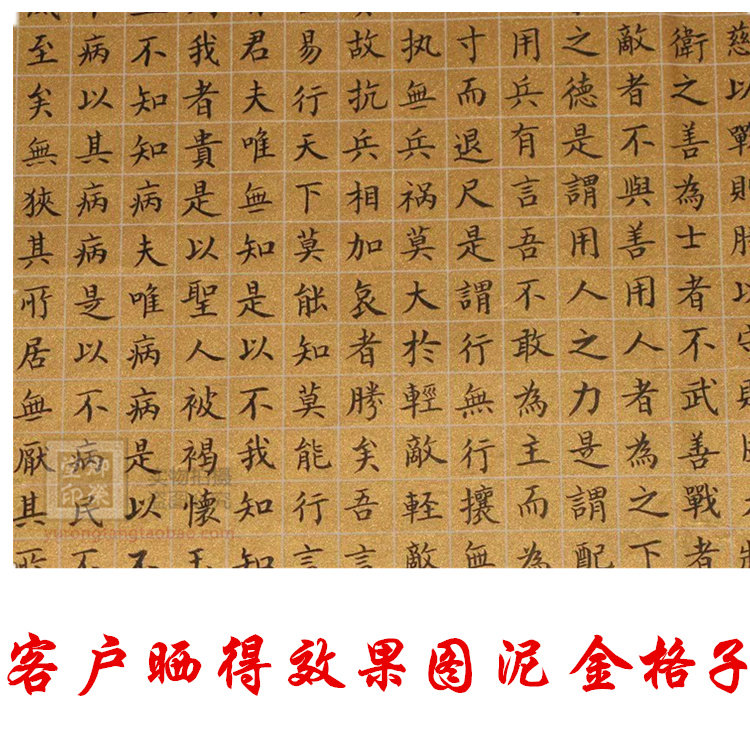 慈以戰則勝以守則
衛之善為士者不武善戰者
敵者不與善用人者為之下
之德是謂用人之力是謂配
用兵有言吾不敢為主而為
寸而退尺是謂行無行攘無
执無兵祸莫大於輕敵軽敵
故抗兵相加哀者勝矣吾言
易行天下莫能知莫能行言
君夫唯無知是以不我知知
我者貴是以聖人被褐懷玉
不知知病夫唯病病是以不
病以其病病是以不病民不
至矣無狹其所居無厭其所
实物拍摄
客户晒得效果图泥金格子